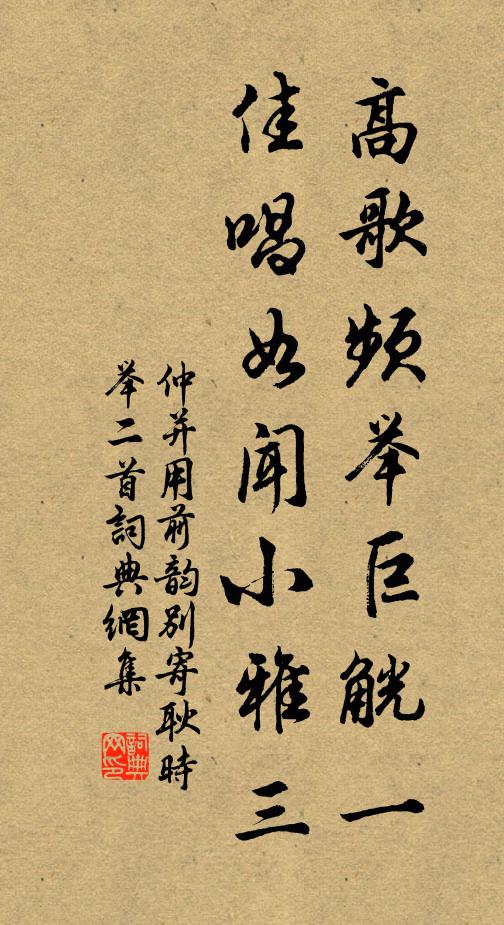 高歌频举巨觥一
佳唱如闻小雅三
仲并用前韵别寄耿時
举二首詞典網集
詞典
网印